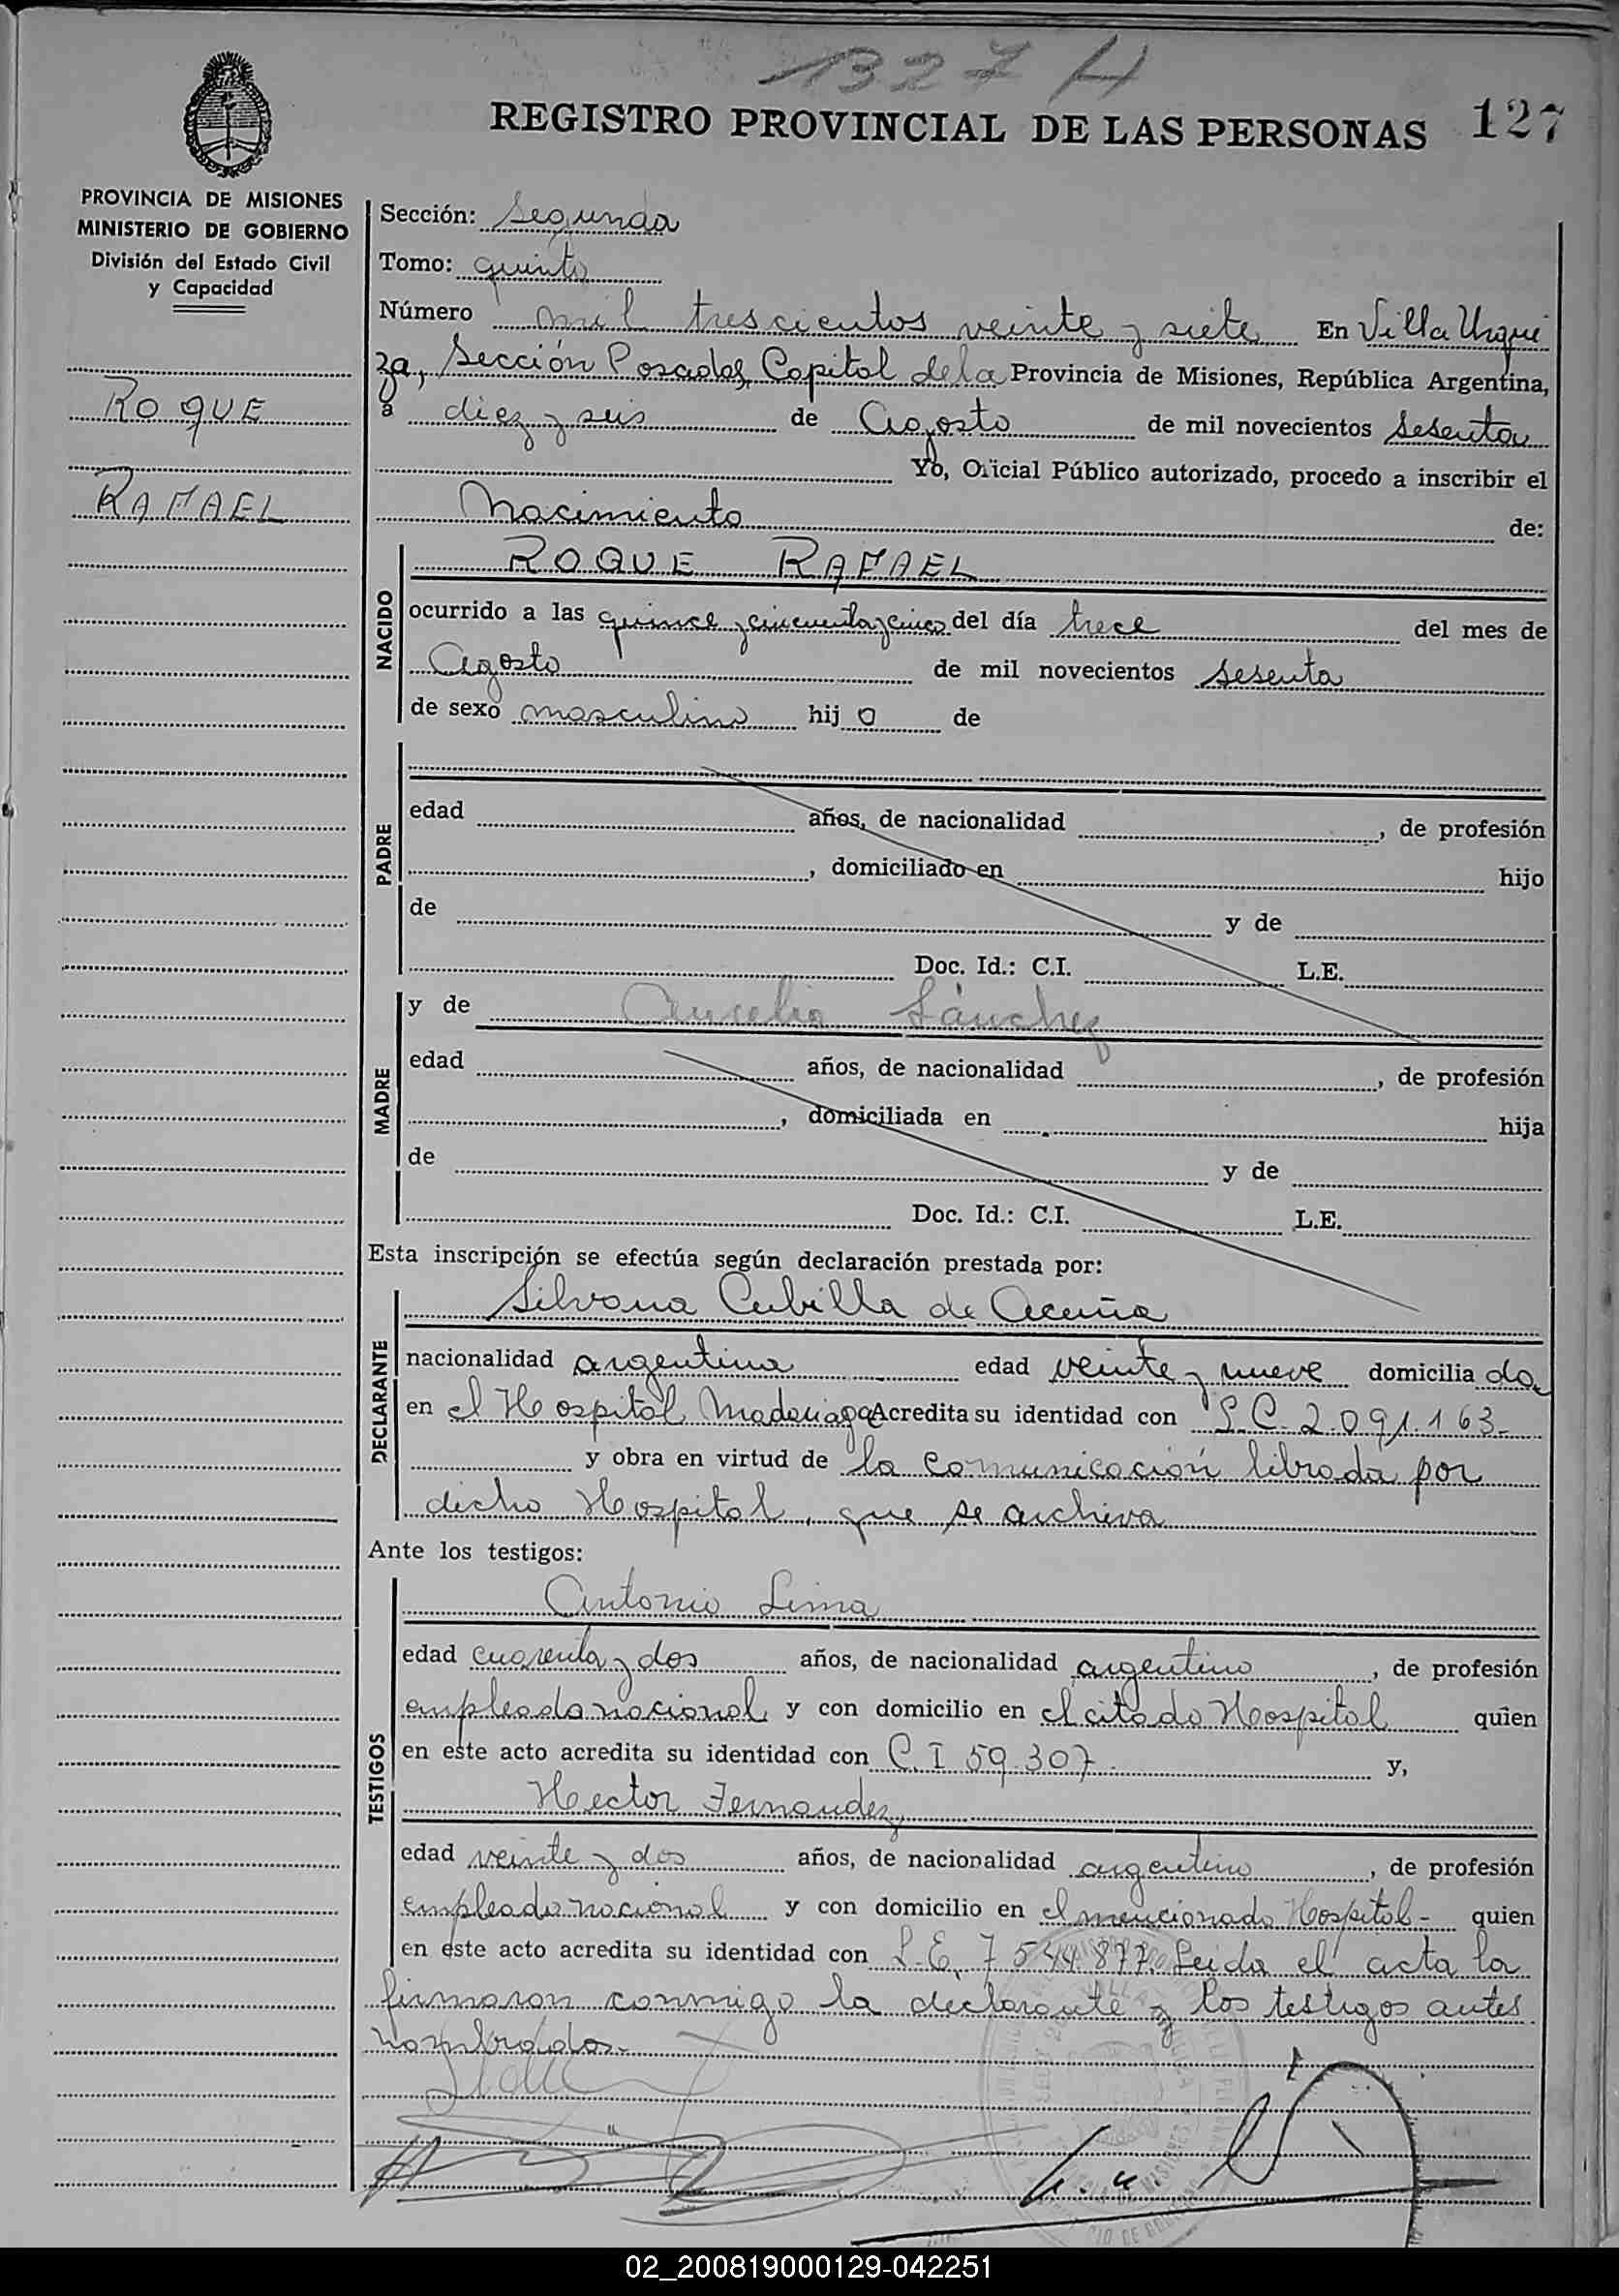 1327 H
REGISTRO PROVINCIAL DE LAS PERSONAS 127
PROVINCIA DE MISIONES
MINISTERIO DE GOBIERNO
División del Estado Civil
y Capacidad
ROQUE
RAFAEL
Sección: Segunda
Tomo: quinto
Número mil trescientos veinte y siete En Villa Urqui
za, Sección Posadas, Capital de la Provincia de Misiones, República Argentina,
a diez y seis de Agosto de mil novecientos sesenta
Yo, Oficial Público autorizado, procedo a inscribir el
Nacimiento de:
NACIDO
ROQUE RAFAEL
ocurrido a las quince y cincuenta y cinco del día trece del mes de
Agosto de mil novecientos sesenta
de sexo masculino hij o de
PADRE
edad años, de nacionalidad , de profesión
, domiciliado en hijo
de y de
Doc. Id.: C.I. L.E.
MADRE
y de Aurelia Sánchez
edad años, de nacionalidad , de profesión
, domiciliada en hija
de y de
Doc. Id.: C.I. L.E.
Esta inscripción se efectúa según declaración prestada por:
DECLARANTE
Silvana Cubilla de Acuña
nacionalidad argentina edad veinte y nueve domicilia da
en el Hospital Madariaga Acredita su identidad con L.C. 2.091.163-
y obra en virtud de la comunicación librada por
dicho Hospital, que se archiva
Ante los testigos:
TESTIGOS
Antonio Lima
edad cuarenta y dos años, de nacionalidad argentino , de profesión
empleado nacional y con domicilio en el citado Hospital quien
en este acto acredita su identidad con C.I 59.307 y,
Hector Fernandez
edad veinte y dos años, de nacionalidad argentino , de profesión
empleado nacional y con domicilio en el mencionado Hospital- quien
en este acto acredita su identidad con L.E. 7.544.877. Leida el acta la
firmaron conmigo la declarante y los testigos antes
nombrados.-
02_200819000129-042251